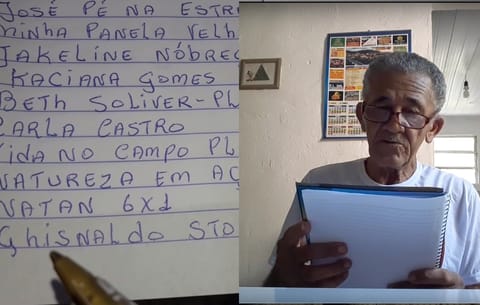 JOSÉ PÉ NA ESTR
MINHA PANELA VELH
JAKELINE NÓBREG
KACIANA GOMES
BETH SOLIVER-PL
CARLA CASTRO
VIDA NO CAMPO PL
NATUREZA EM AÇ
NATAN 6X1
GhisNALdo STO